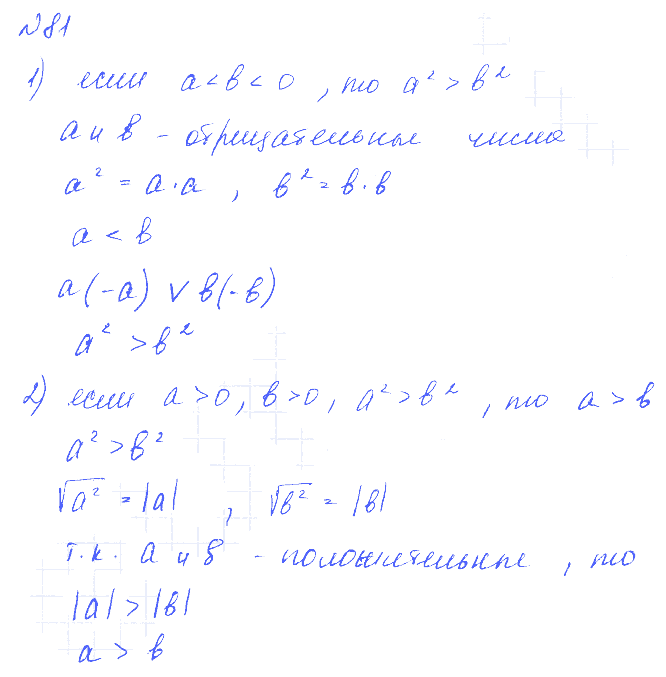 №81
1) если а < в < 0 , то а² > в²
а и в – отрицательные числа
а² = а·а , в² = в·в
а < в
а(-а) ∨ в(-в)
а² > в²
2) если а>0, в>0, а²>в² , то а > в
а² > в²
√а² = |а| , √в² = |в|
т.к. а и в – положительные , то
|а| > |в|
а > в